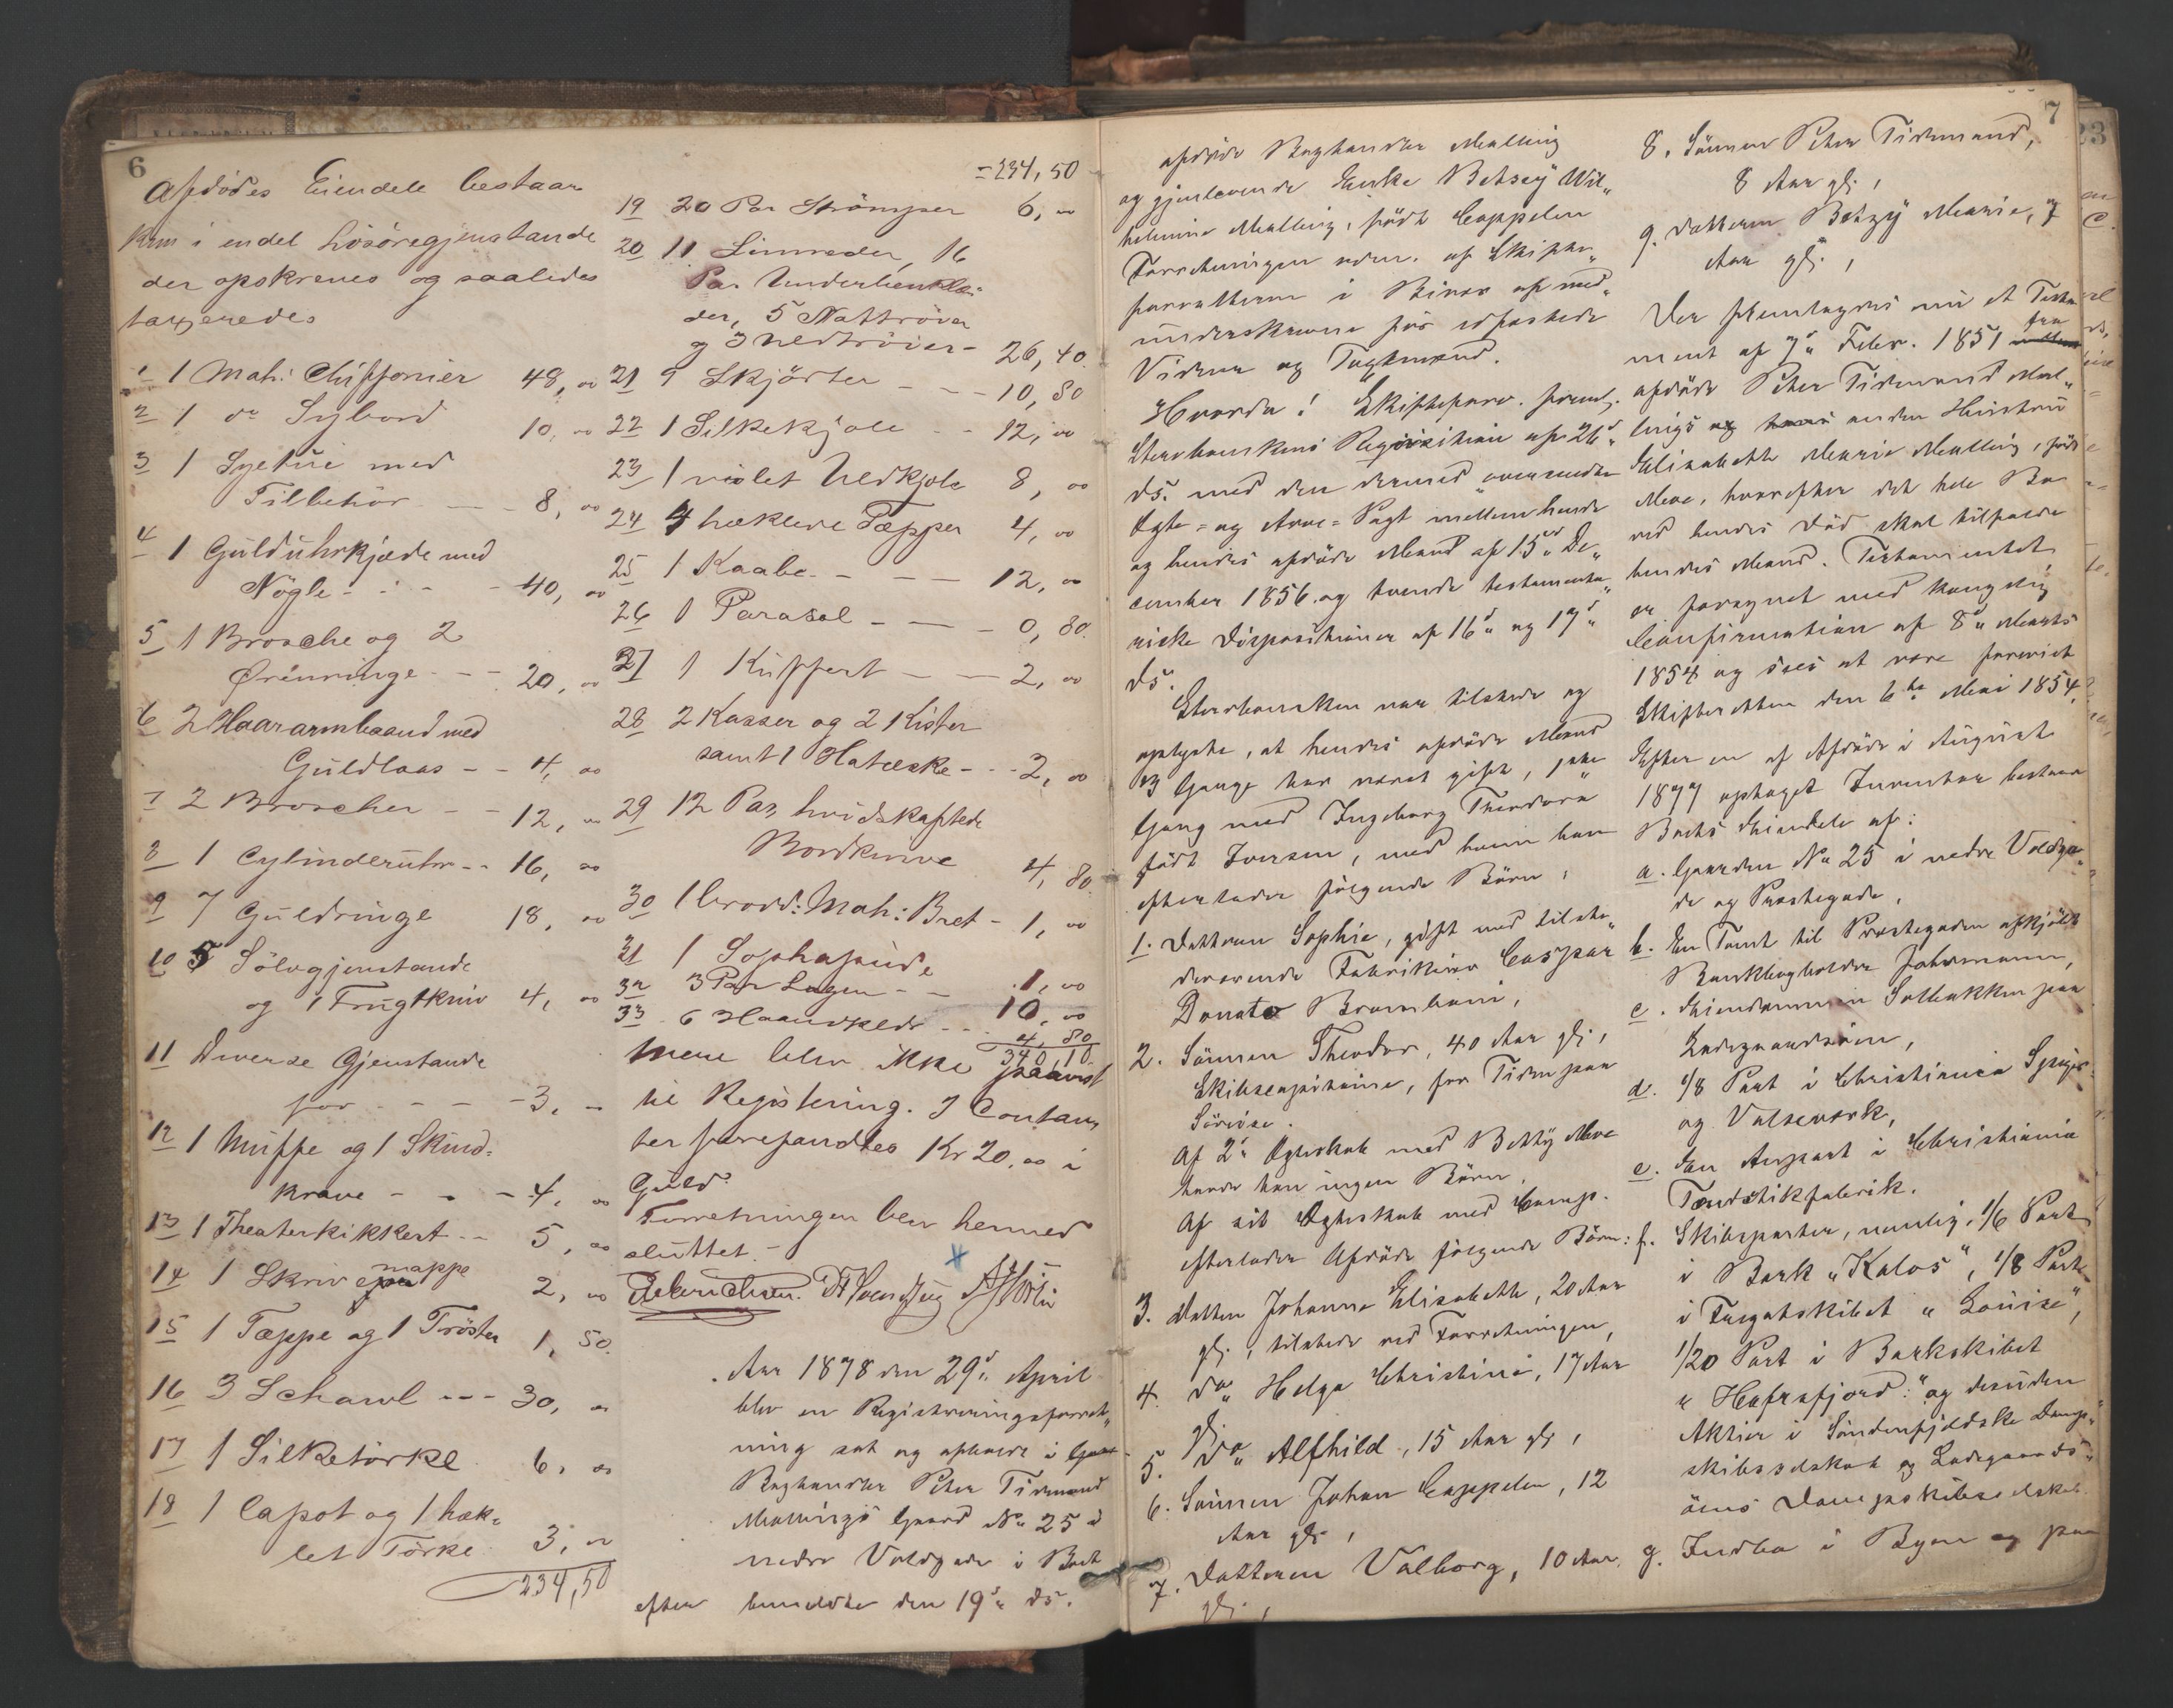 6
Afdödes Eiendele bestaar
kun i endel Lösöregjenstande
der opskreves og saaledes
taxeredes
1 1 Mah: Chiffonier 48, 00
2 1 do Sybord 10, 00
3 1 Syetui med
Tilbehör - - 8, 00
4 1 Gulduhrkjæde med
Nögle - - - 40, 00
5 1 Brosche og 2
Ørenringe - - 20, 00
6 2 Haararmbaand med
Guldlaas - - 4, 00
7 2 Broscher - - 12, 00
8 1 Cylinderuhr - - 16, 00
9 7 Guldringe 18, 00
10 5 Sölvgjenstande
og 1 Frugtkniv 4, 00
11 Diverse Gjenstande
for - - - - 3, -
12 1 Muffe og 1 Skind-
krave - - - 4, 00
13 1 Theaterkikkert - - 5, 00
14 1 Skrivemappe 2, 00
15 1 Tæppe og 1 Tröster 1, 50
16 3 Schawl - - - 30, 00
17 1 Silketörkl 6, 00
18 1 Capot og 1 hæk-
let Törkl. 3, 00
234, 50
- 234, 50
19 20 Par Strömper 6, 00
20 11 Linneder, 16
Par Underbenklæ-
der, 5 Nattröier
og 3 Uldtröier - 26, 40
21 9 Skjörter - - - 10, 80
22 1 Silkekjole - - 12, 00
23 1 violet Uldkjole 8, 00
24 4 heklede Tæpper 4, 00
25 1 Kaabe - - - 12, 00
26 1 Parasol - - - 0, 80
27 1 Kuffert - - - 2, 00
28 2 Kasser og 2 Kister
samt 1 Hatæske - - - 2, 00
29 12 Par hvidskaftede
Bordknive 4, 80
30 1 brod: Mah: Bret - 1, 00
31 1 Sophapude 1, 00
32 3 Par Lagen - - 10, 00
33 6 Haandklæder - - - 4, 80
340, 10
Mere blev ikke paavist
til Registering. I Contan-
ter forefandtes Kr 20, 00 i
Guld.
Forretningen blev hermed
sluttet. -
Aar 1878 den 29de April
blev en Registreringsforret-
ning sat og afholdt i
Boghandler Peter Tidemand
Mallings Gaard No 25 i
nedre Voldgade i Boet
efter den 19de ds.
7
afdøde Boghandler Malling
og gjenlevende Enke Betsey Wil-
helmine Malling, født Cappelen
Forretningen adm. af Skifte-
forvalteren i Bivær af med-
underskrevne for edfæstede
Vidner og Taxtmænd.
Hvorda! Skifteforv. freml.
Sterbenkens Requisition af 26de
ds. med den dermed oversendte
Ægte- og Arve-Pagt mellem hende
og hendes afdøde Mand af 15de De-
cember 1856 og tvende testamenta-
riske Dispositioner af 16de og 17de
ds.
Sterbenken var tilstede og
oplyste, at hendes afdøde Mand
3 Gange har været gift, 1ste
Gang med Ingeborg Theodora
født Iversen, med hvem han
efterlader følgende Børn:
1. Datteren Sophie, gift med tilste-
deværende Fabrikeier Caspar
Donato Brambani,
2. Sønnen Theodor, 40 Aar gl.,
Skibscapitaine, for Tiden paa
Söreise.
Af 2det Ægteskab med Betsy Mere
havde han ingen Børn.
Af sit Ægteskab med Comp.
efterlader Afdøde følgende Børn:
3. Datter Johanne Elisabeth, 20 Aar
gl., tilstede ved Forretningen,
4. do Helga Christine, 17 Aar
gl.,
5. do Alfhild, 15 Aar gl.,
6. Sönnen Johan Cappelen, 12
Aar gl.,
7. Datteren Valborg, 10 Aar
gl.,
8. Sönnen Peter Tidemand,
8 Aar gl.,
9. Datteren Betzy Marie, 7
Aar gl.,
Der fremlagdes nu et Testa-
ment af 7de Febr. 1851 fra
afdøde Peter Tidemand Mal-
lings og hans anden Hustru
Elisabeth Marie Malling, født
Mere, hvorefter det hele Bo
ved hendes Død skal tilfalde
hendes Mand. Testamentet
er forsynet med kongelig
Confirmation af 8de Marts
1854 og sees at være forevist
Skifteretten den 6te Mai 1854.
Efter en af Afdøde i August
1877 optaget Inventar bestaar
Boets Eiendele af:
a. Gaarden No 25 i nedre Voldga-
de og Præstegade,
b. En Tomt til Præstegaden afkjøbt
Bankbogholder Johannsen,
c. Eiendommen Solbakken paa
Ladegaardsöen,
d. 1/8 Part i Christiania Spiger-
og Valseværk,
e. En Anpart i Christiania
Tændstikfabrik.
f. Skibsparter, nemlig: 1/6 Part
i Bark "Kalos", 1/8 Part
i Fregatskibet "Louise",
1/20 Part i Barkskibet
"Hafrsfjord:" og desuden
Aktier i Söndenfjeldske Damp-
skibsselskab og Ladegaards-
öens Dampskibsselskab.
g. Indbo i Byen og paa